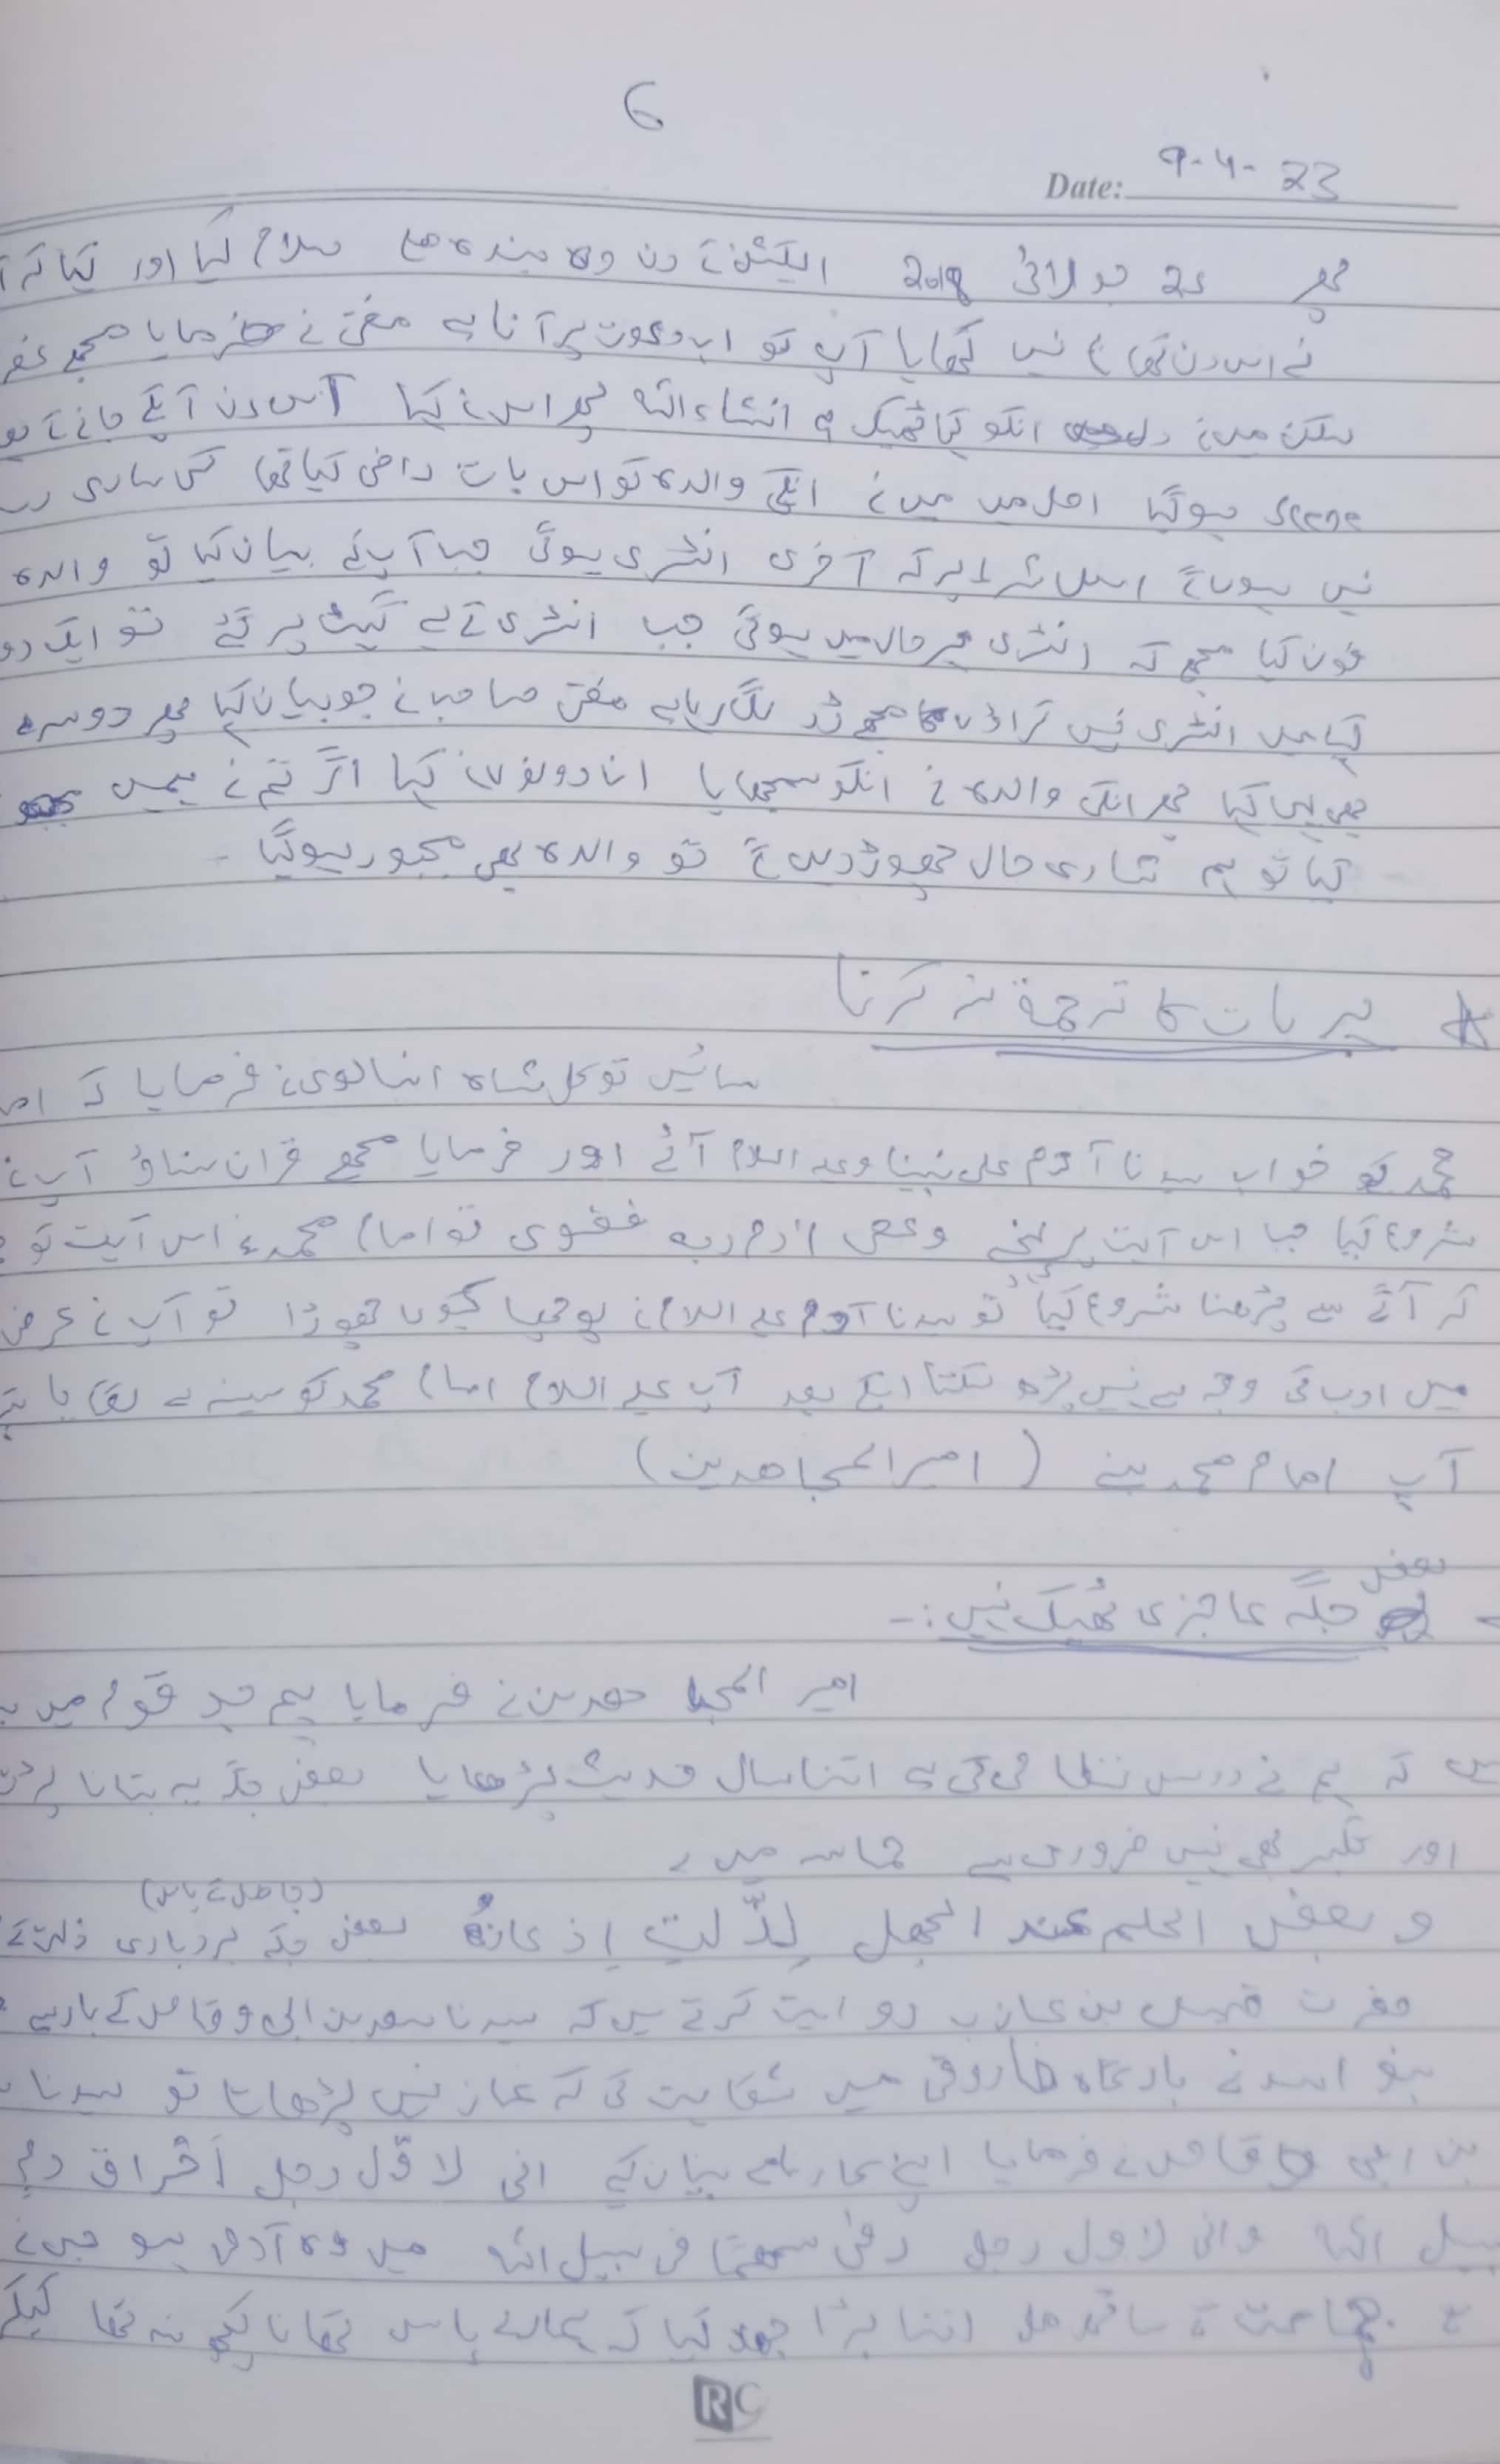 6
Date: 9-4-23
پھر 25 جولائی 2018 الیکشن کے دن وہ بندہ ملا سلام کیا اور کہا کہ آ
نے اس دن کھانا نہیں کھایا آپ کو اب دعوت پر آنا ہے مفتی نے فرمایا مجھے غصہ
لیکن میں نے انکو کہا ٹھیک ہے انشاءاللہ پھر اس نے کہا اس دن آپکے جانے کے بعد
ہوگیا اصل میں میں نے انکی والدہ کو اس بات راضی کیا تھا کہ ساری
نہیں ہوں گے اس شرط پر کہ آخری انٹری ہوگی جب آپ نے بیان کیا تو والدہ
فون کیا مجھے کہ انٹری ہر حال میں ہوگی جب انٹری کے لیے گیٹ پر گئے تو ایک دو
کہا میں انٹری نہیں کراؤں گا مجھے ڈر لگ رہا ہے مفتی صاحب نے جو بیان کیا پھر دوسرے
بھی یہی کہا پھر انکی والدہ نے انکو سمجھایا ان دونوں نے کہا اگر تم نے ہمیں
کہا تو ہم شادی حال چھوڑ دیں گے تو والدہ بھی مجبور ہوگیا -
ہر بات کا ترجمہ نہ کرنا
سائیں توکل شاہ انبالوی نے فرمایا کہ امام
محمد کو خواب سیدنا آدم علی نبینا وعلیہ السلام آئے اور فرمایا مجھے قران سناؤ آپ نے
شروع کیا جب اس آیت پر پہنچے وعصی ادم ربہ فغوی تو امام محمد نے اس آیت کو
کر آگے سے پڑھنا شروع کیا تو سیدنا آدم علیہ السلام نے پوچھا کیوں چھوڑا تو آپ نے عرض
میں ادب کی وجہ سے نہیں پڑھ سکتا اسکے بعد آپ علیہ السلام امام محمد کو سینہ سے لگایا
آپ امام محمد بنے (امیر المجاہدین)
بعض جگہ عاجزی ٹھیک نہیں :-
امیر المجاھدین نے فرمایا ہم قوم میں
ہیں کہ ہم نے درس نظامی کی ہے اتنا سال حدیث پڑھایا بعض جگہ یہ بتانا پڑتا
اور تکبر بھی نہیں ضروری ہے حماسہ میں ہے
(جاھل کے پاس)
و بعض الحلم عند الجھل لِلذّلۃِ اِذعانٌ بعض جگہ بردباری ذلت کے
حضرت قیس بن حازب روایت کرتے ہیں کہ سیدنا سعد بن ابی وقاص کے بارے
بنو اسد نے بارگاہ فاروقی میں شکایت کی کہ نماز نہیں پڑھاتا تو سیدنا
بن ابی وقاص نے فرمایا اپنے کارنامے بیان کیے انی لاوّل رجل اَھْرَاق دم
سبیل اللہ وانی لاول رجل رمیٰ سھمًا فی سبیل اللہ میں وہ آدمی ہو جس نے
جماعت کے ساتھ ملا اتنا بڑا جھد کیا کہ ہمارے پاس کھانا کچھ نہ تھا کیکر
RC